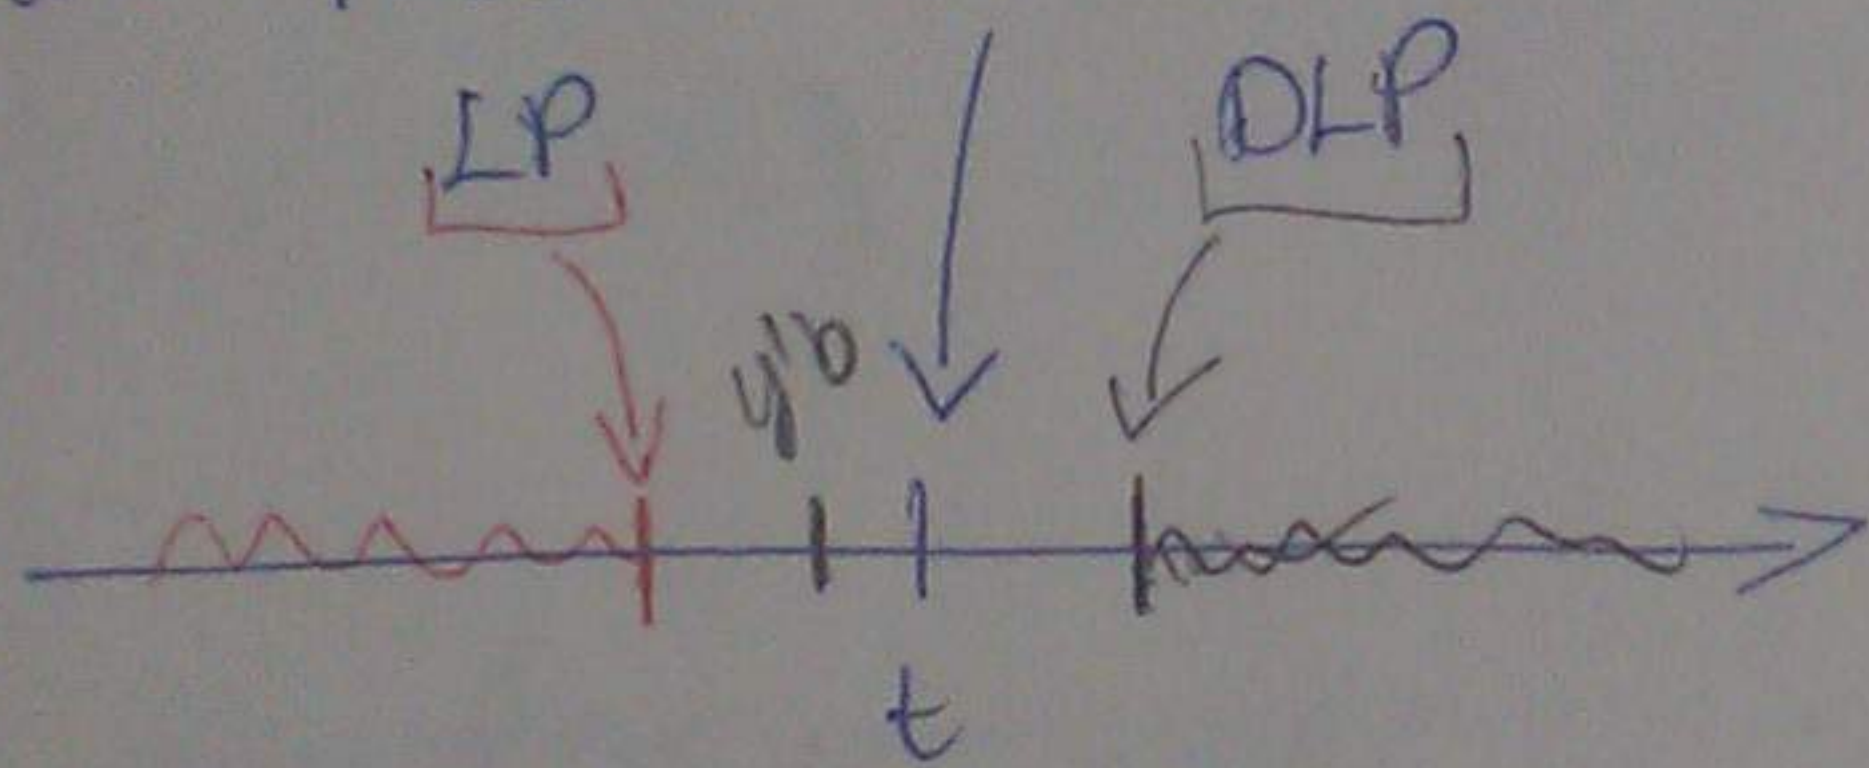 LP
DLP
y'b
t